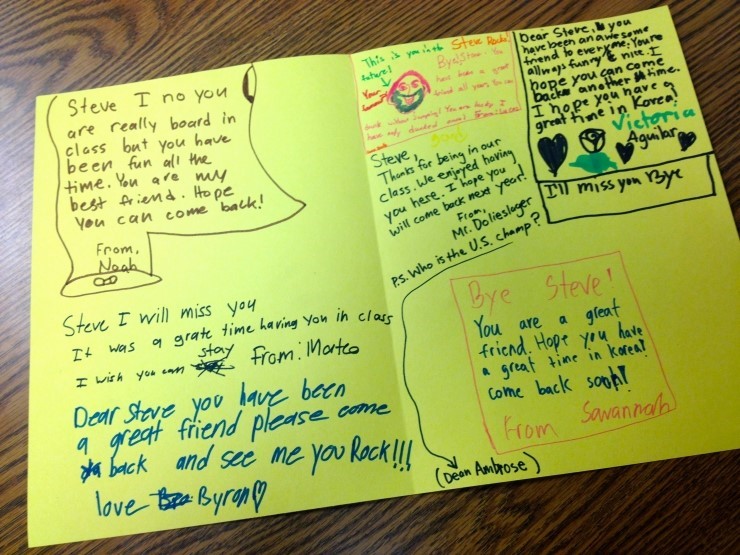 Steve I no you
are really board in
class but you have
been fun all the
time. You are my
best friend. Hope
you can come back!
From,
Noah
Steve I will miss you
It was a grate time having you in class
I wish you can stay From: Mateo
Dear Steve you have been
a great friend please come
back and see me you Rock!!!
love Byron
This is you in the
future!
Your
Steve Rocks!
Bye Steve. You
have been a great
friend all year. You can
Steve,
Thanks for being in our
class. We enjoyed having
you here. I hope you
will come back next year!
From,
Mr. Dolieslager
P.S. Who is the U.S. champ?
(Dean Ambrose)
Dear Steve, you
have been an awesome
friend to everyone. Youre
allways funny & nice. I
hope you can come
back another time.
I hope you have a
great time in Korea!
Victoria
Aguilar
I'll miss you Bye
Bye Steve!
You are a great
friend. Hope you have
a great time in korea!
come back soon!
From Savannah